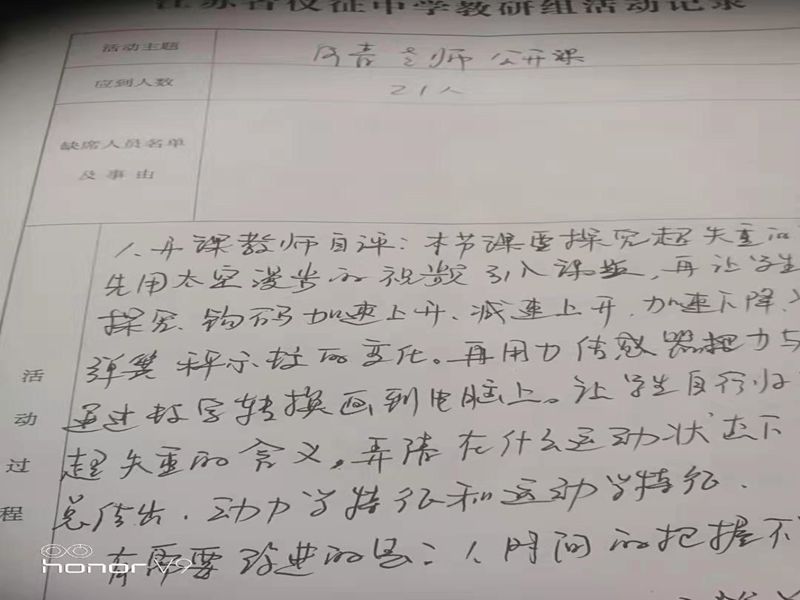 江苏省仪征中学教研组活动记录
活动主题 老师公开课
应到人数 21人
缺席人员名单
及事由
活动过程
1、开课教师自评：本节课要探究超失重
先用太空漫步的视频引入课题，再让学生
探究钩码加速上升、减速上升、加速下降、
弹簧秤示数的变化。再用力传感器把力与
通过数字转换画到电脑上。让学生自行归
超失重的含义，弄清在什么运动状态下
总结出，动力学特征和运动学特征.
有所要改进的是：1、时间的把握不
honor V9